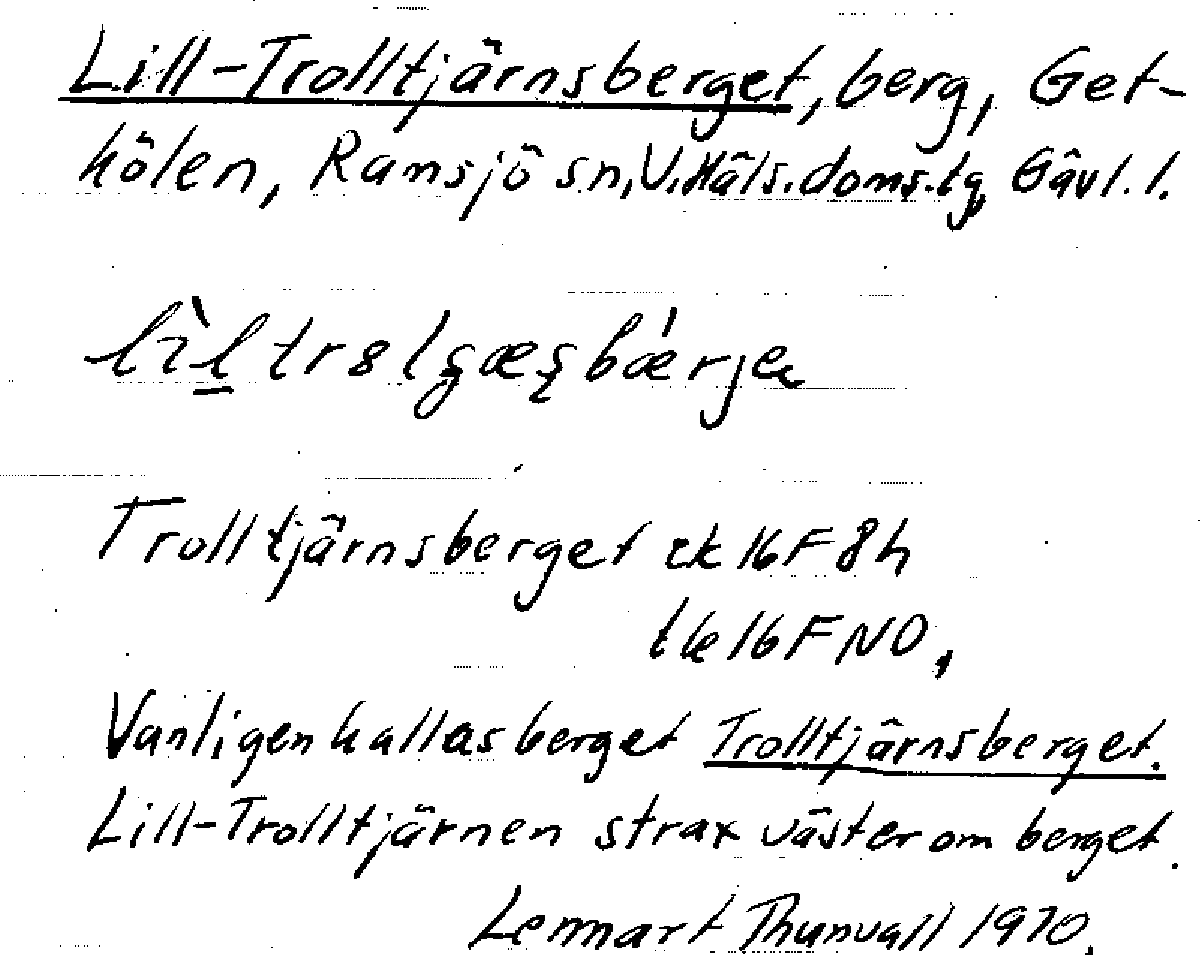 Lill-Trolltjärnsberget, berg, Get-
kölen, Ramsjö sn, V. Häls. doms.lg, Gävl. l.
Trolltjärnsberget ek 16F8h
tk 16FNO,
Vanligen kallas berget Trolltjärnsberget.
Lill-Trolltjärnen strax väster om berget.
Lennart Thunvall 1970.